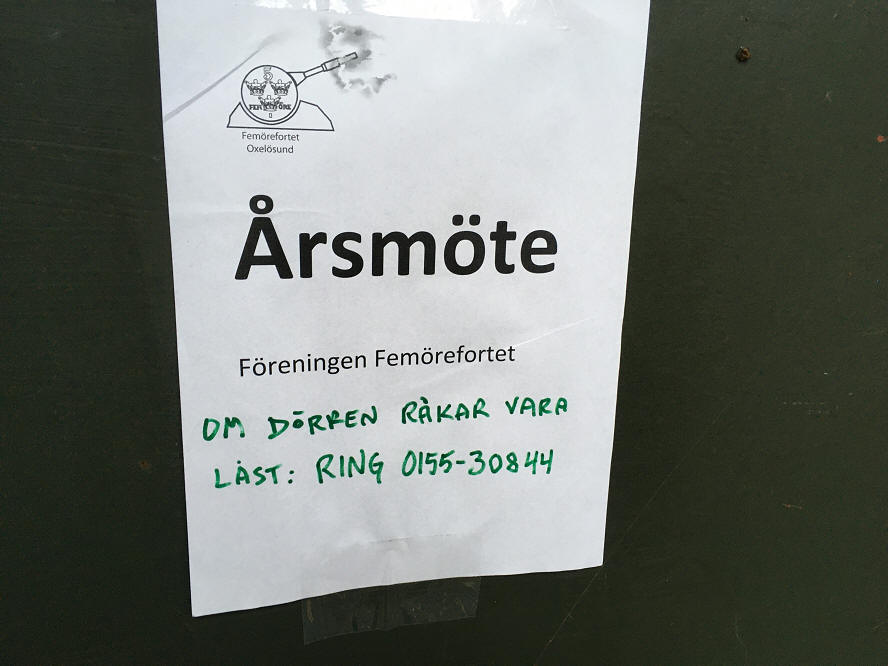 FEMÖRE
Femörefortet
Oxelösund
Årsmöte
Föreningen Femörefortet
OM DÖRREN RÅKAR VARA
LÅST: RING 0155-30844